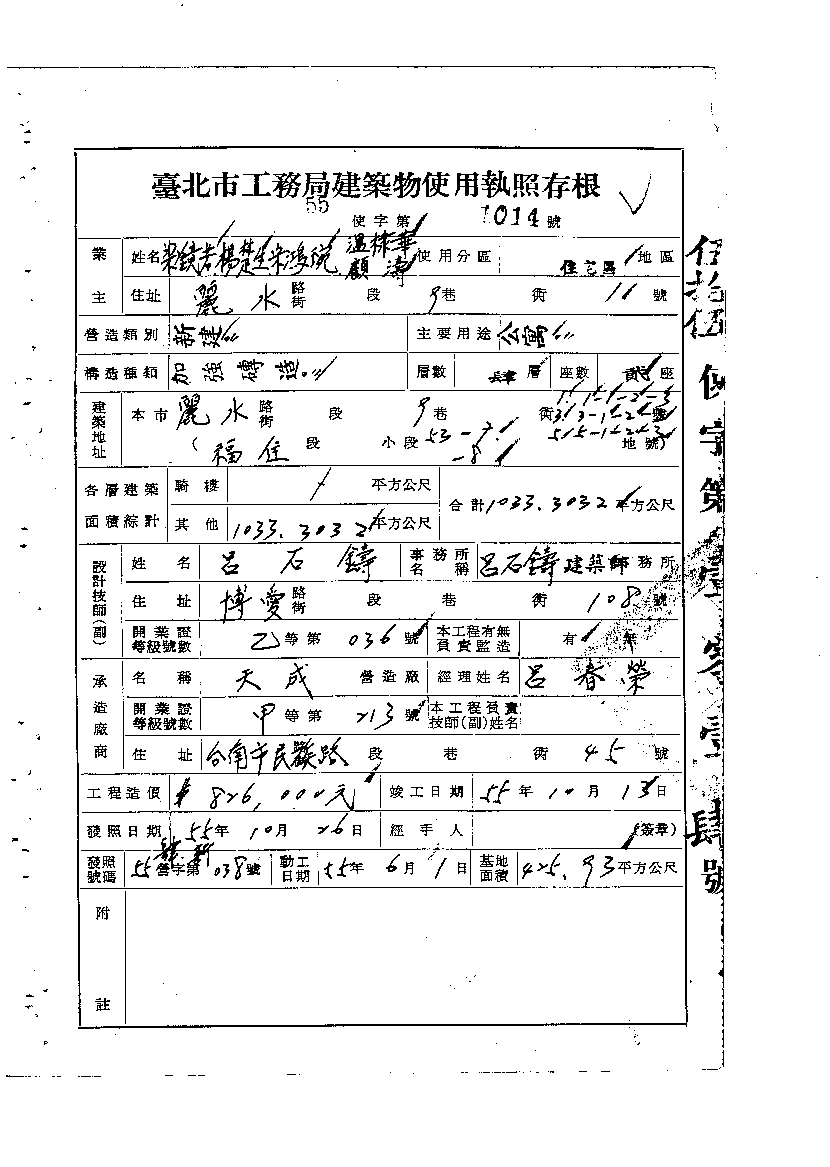 臺北市工務局建築物使用執照存根
55使字第1014號
業主 姓名 溫棣華 顧濤 使用分區 住宅區 地區
住址 麗水路街 段 9巷 衖 11號
營造類別 新建 主要用途 公寓
構造種類 加強磚造 層數 肆層 座數 貳座
建築地址 本市 麗水路街 段 9巷 衖 號
(福住段 小段 53-7 地號)
-8
各層建築面積綜計 騎樓 / 平方公尺 合計1033.3032平方公尺
其他 1033.3032平方公尺
設計技師(副) 姓名 呂石鑄 事務所名稱 呂石鑄建築師務所
住址 博愛路街 段 巷 衖 108號
開業證等級號數 乙等第036號 本工程有無負責監造 有 無
承造廠商 名稱 天成營造廠 經理姓名 呂春榮
開業證等級號數 甲等第213號 本工程負責技師(副)姓名
住址 台南市民族路 段 巷 衖 45號
工程造價 $826,000元 竣工日期 55年10月13日
發照日期 55年10月26日 經手人 (簽章)
發照號碼 55營字第038號 動工日期 55年6月1日 基地面積 425.93平方公尺
附註
伍拾伍使字第壹零壹肆號